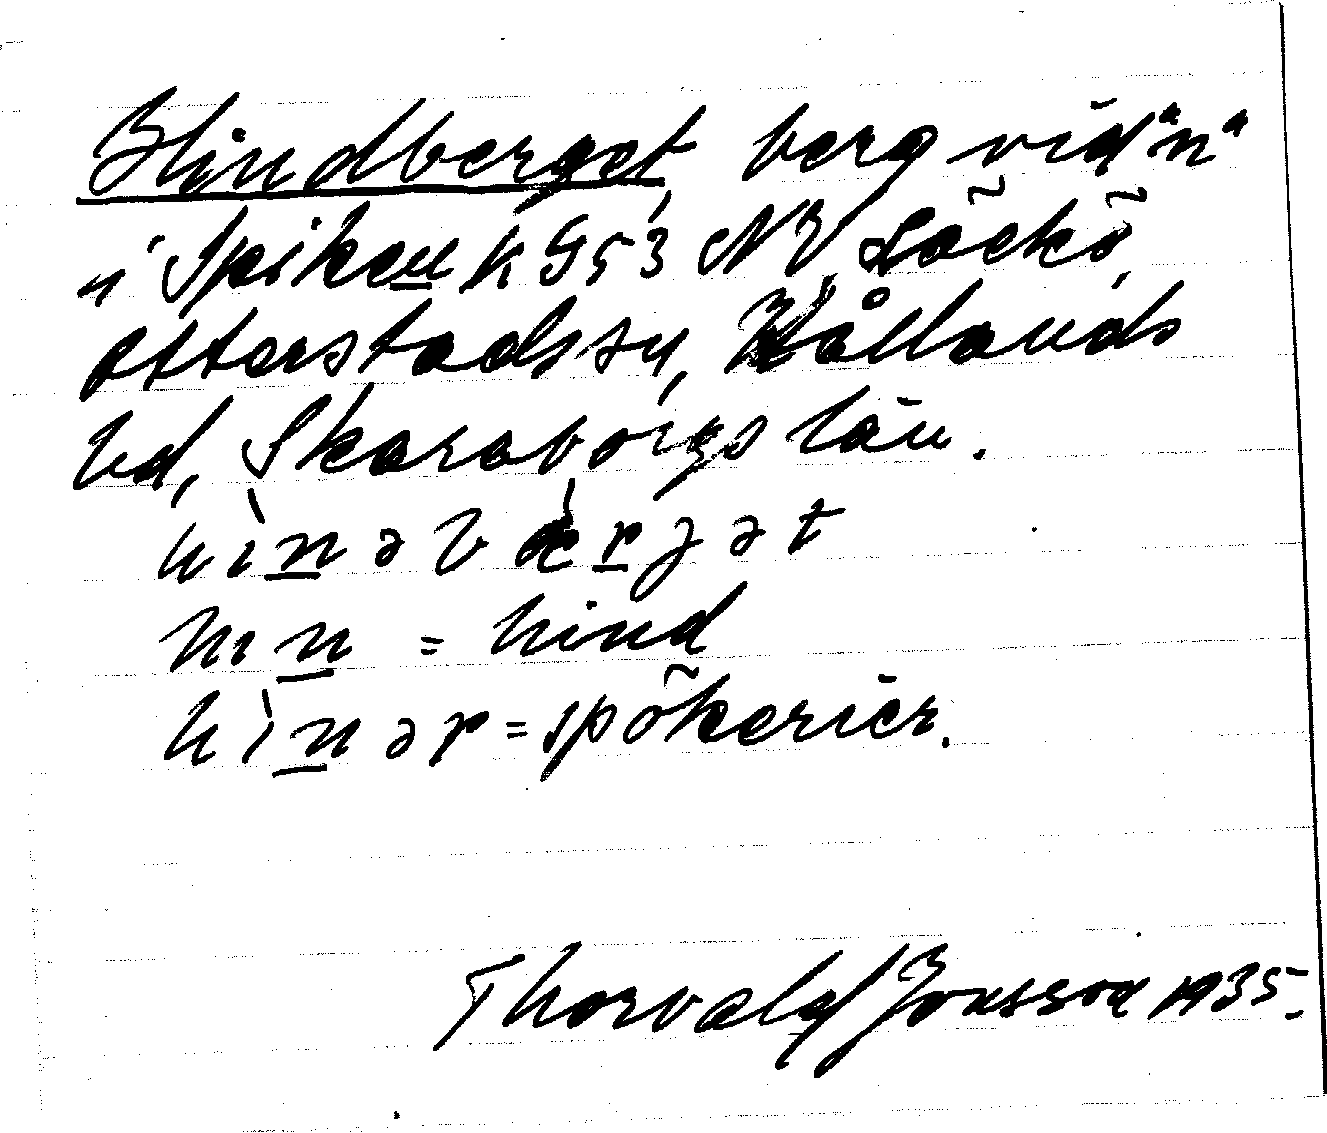 Hindberget, berg vid "n"
i Spiken k G53 NV Läckö,
Otterstads sn, Kållands
hd, Skaraborgs län.
hìnəbærjət
hin = hind
hìnər = spökerier.
Thorvald Jonsson 1935.